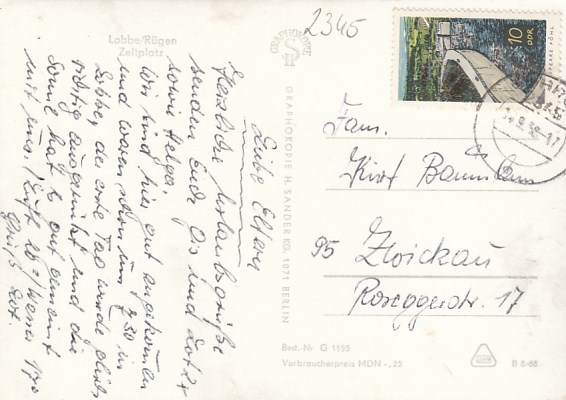 Lobbe/Rügen
Zeltplatz
2345
Liebe Eltern
Herzliche Urlaubsgrüße
senden Euch Gis und Lothar
sowie Helga.
Wir sind hier gut angekommen
und waren schon um 7.30 in
Lobbe, der erste Tag wurde gleich
richtig ausgenützt und die
Sonne hat es gut gemeint
mit uns. Luft 26° Wasser 17°
Gruß Lot.
GRAPHOKOPIE
GRAPHOKOPIE H. SANDER KG. 1071 BERLIN
10
DDR
PÖHL
Fam.
Kurt
95 Zwickau
Roseggerstr. 17
Best.-Nr G 1595
Verbraucherpreis MDN -,25
B 6-68